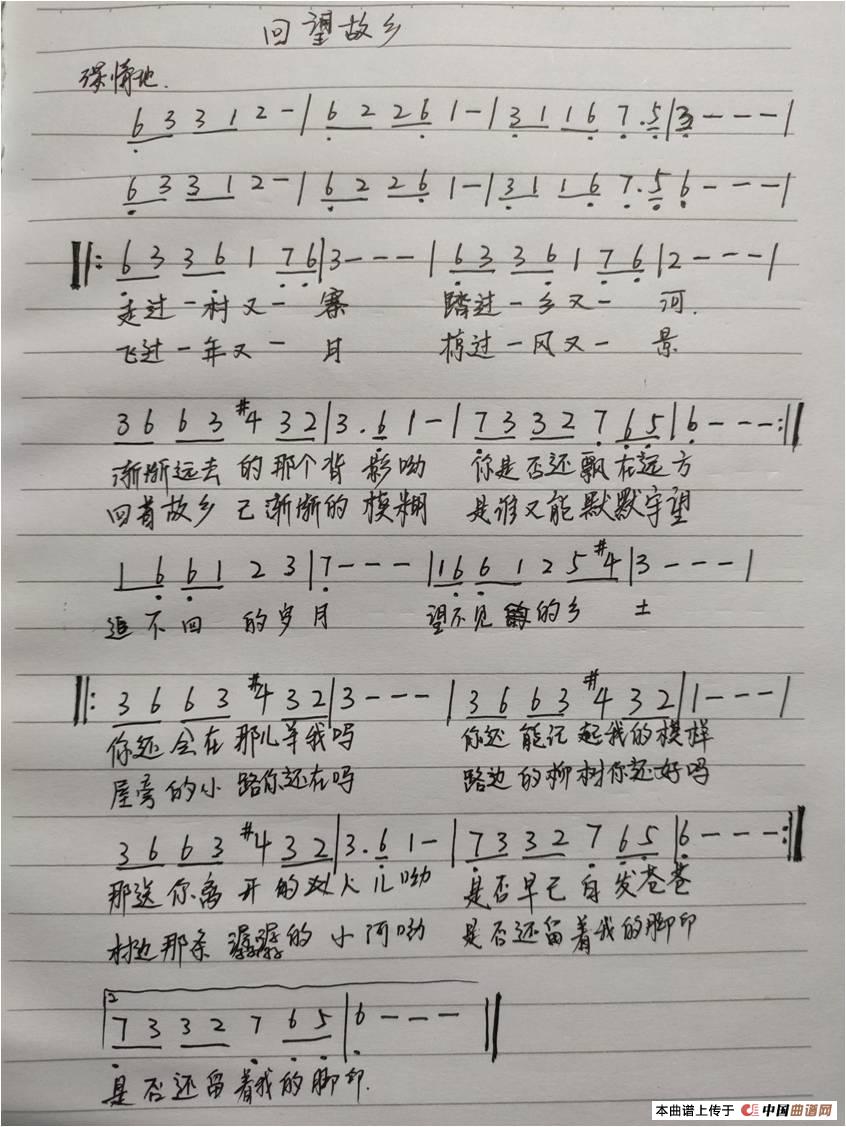 回望故乡
深情地.
6 3 3 1 2 - | 6 2 2 6 1 - | 3 1 1 6 7 . 5 | 3 - - - |
6 3 3 1 2 - | 6 2 2 6 1 - | 3 1 1 6 7 . 5 6 - - - |
‖: 6 3 3 6 1 7 6 | 3 - - - | 6 3 3 6 1 7 6 | 2 - - - |
走过一村又一寨 踏过一乡又一河.
飞过一年又一月 掠过一风又一景
3 6 6 3 #4 3 2 | 3 . 6 1 - | 7 3 3 2 7 6 5 | 6 - - - :‖
渐渐远去的那个背影呦 你是否还飘在远方
回首故乡已渐渐的模糊 是谁又能默默守望
1 6 6 1 2 3 | 7 - - - | 1 6 6 1 2 5 #4 | 3 - - - |
追不回的岁月 望不见的乡土
‖: 3 6 6 3 #4 3 2 | 3 - - - | 3 6 6 3 #4 3 2 | 1 - - - |
你还会在那儿等我吗 你还能记起我的模样
屋旁的小路你还在吗 路边的柳树你还好吗
3 6 6 3 #4 3 2 | 3 . 6 1 - | 7 3 3 2 7 6 5 | 6 - - - :‖
那送你离开的人儿呦 是否早已白发苍苍
村边那条潺潺的小河呦 是否还留着我的脚印
2
7 3 3 2 7 6 5 | 6 - - - ‖
是否还留着我的脚印.
本曲谱上传于 中国曲谱网